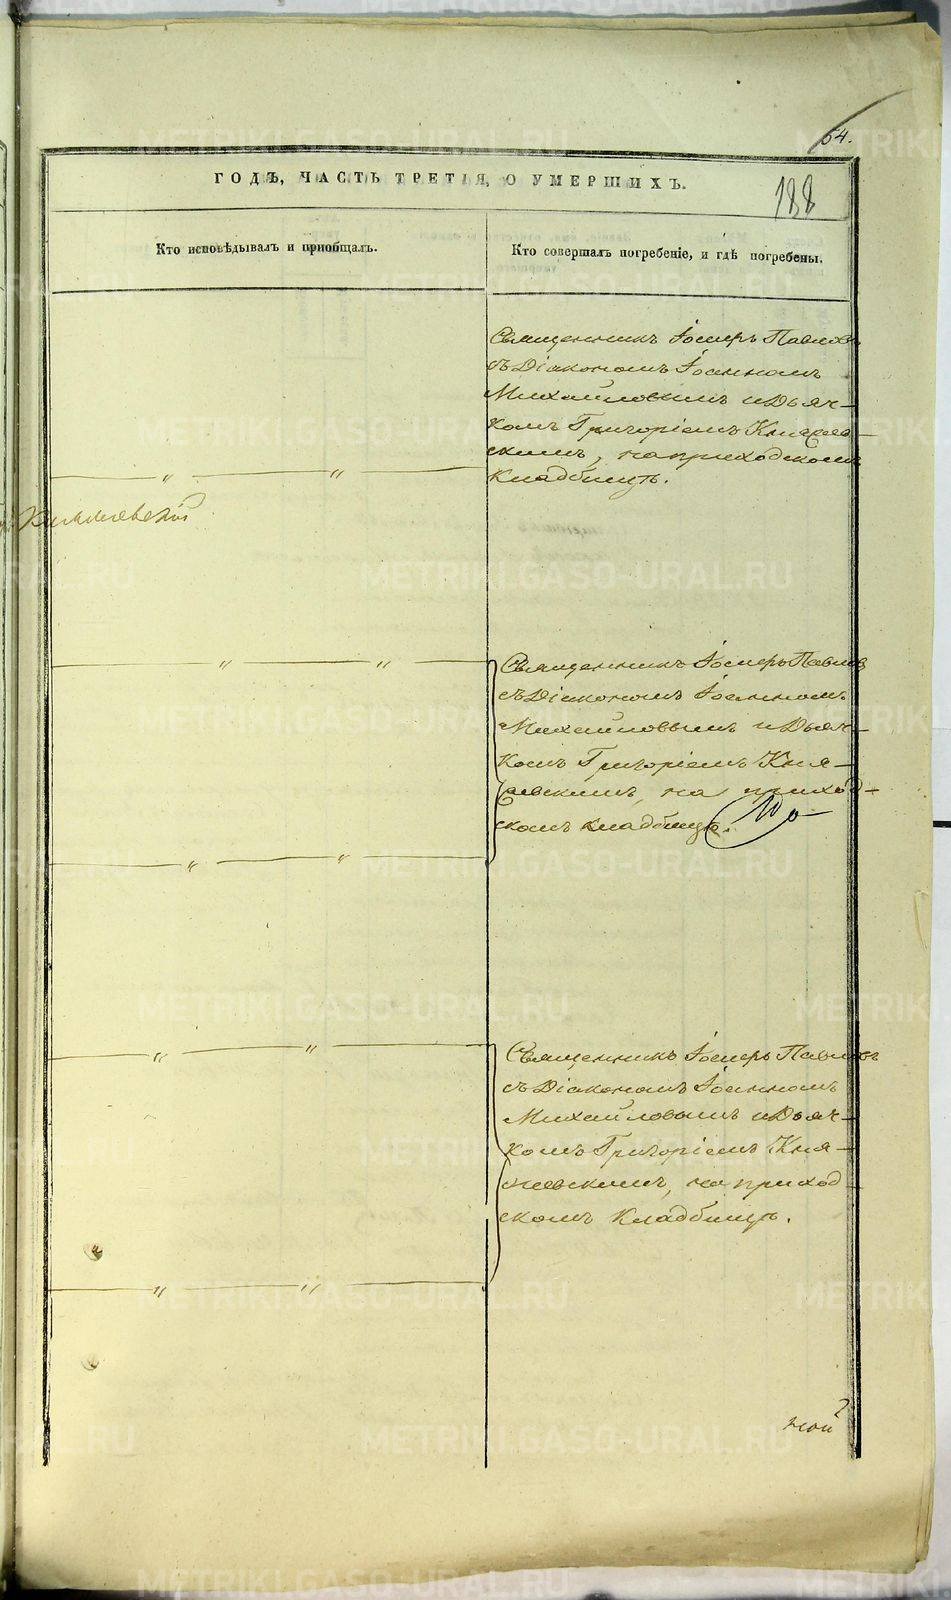 54.
ГОДЪ, ЧАСТЬ ТРЕТІЯ, О УМЕРШИХЪ.
188
Кто исповѣдывалъ и пріобщалъ.
Кто совершалъ погребеніе, и гдѣ погребены.
Священникъ Іосифъ Павловъ
съ Діакономъ Іоанномъ
Михайловымъ и Дьяч-
комъ Григоріемъ Княжев-
скимъ, на приходскомъ
Кладбищѣ.
Священникъ Іосифъ Павловъ
съ Діакономъ Іоанномъ
Михайловымъ и Дьяч-
комъ Григоріемъ Кня-
жевскимъ, на приход-
скомъ кладбищѣ.
Священникъ Іосифъ Павловъ
съ Діакономъ Іоанномъ
Михайловымъ и Дьяч-
комъ Григоріемъ Кня-
жевскимъ, на приход-
скомъ Кладбищѣ.
METRIKI.GASO-URAL.RU